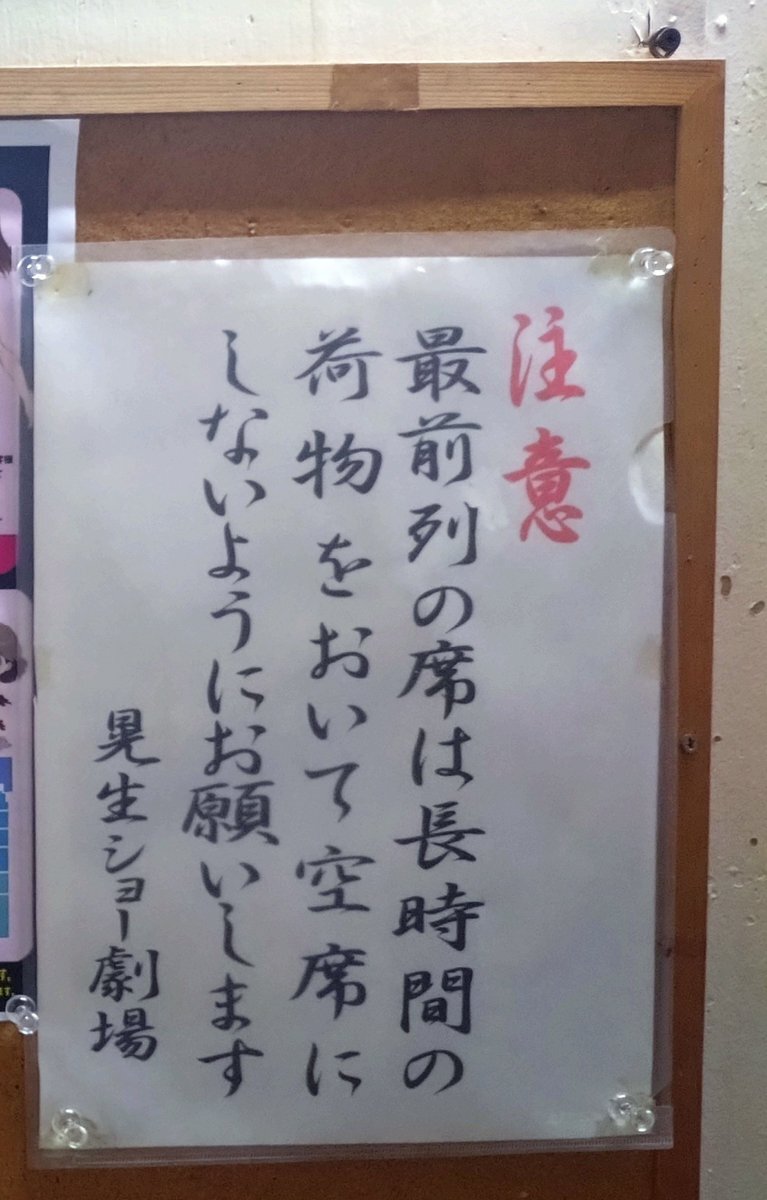 注意
最前列の席は長時間の
荷物をおいて空席に
しないようにお願いします
晃生ショー劇場